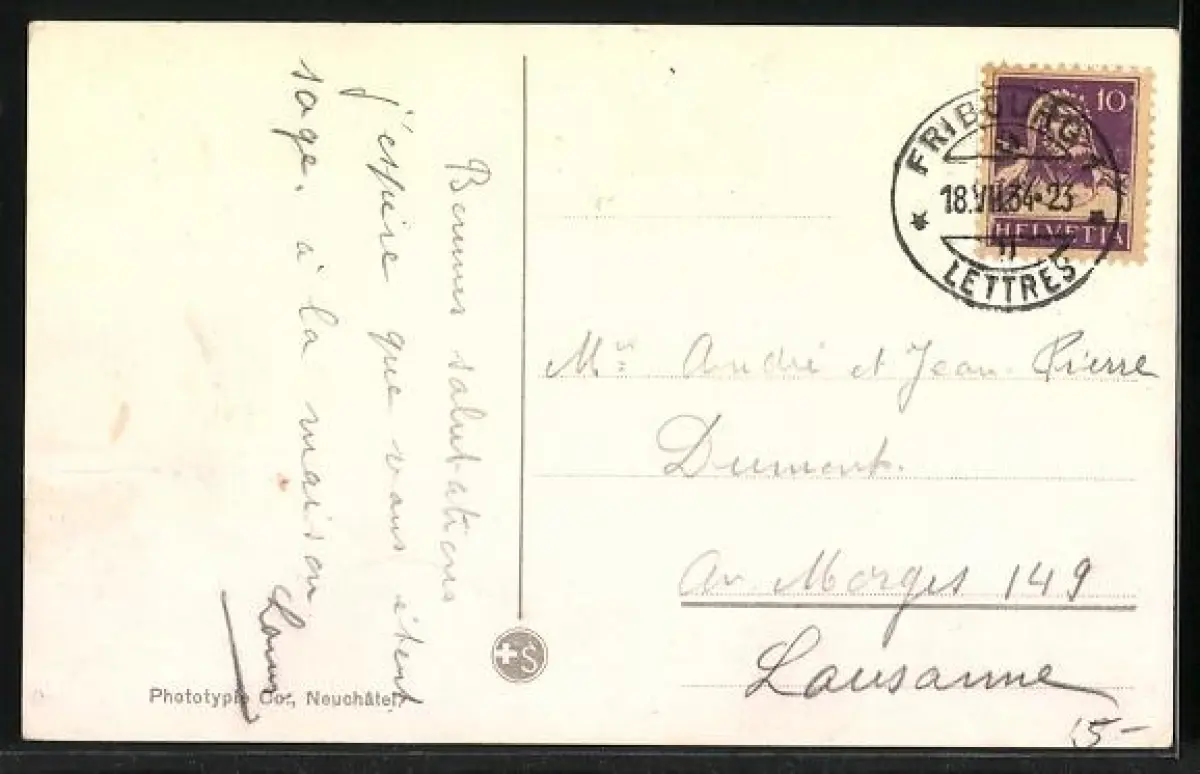 Bonnes salutations
j'espère que vous êtent
sage. à la maison
FRIBOURG 1
18.VII.34-23
LETTRES
10
HELVETIA
Mrs André et Jean-Pierre
Dumont.
Av. Morges 149
Lausanne
+S
Phototypie Co., Neuchâtel
15-